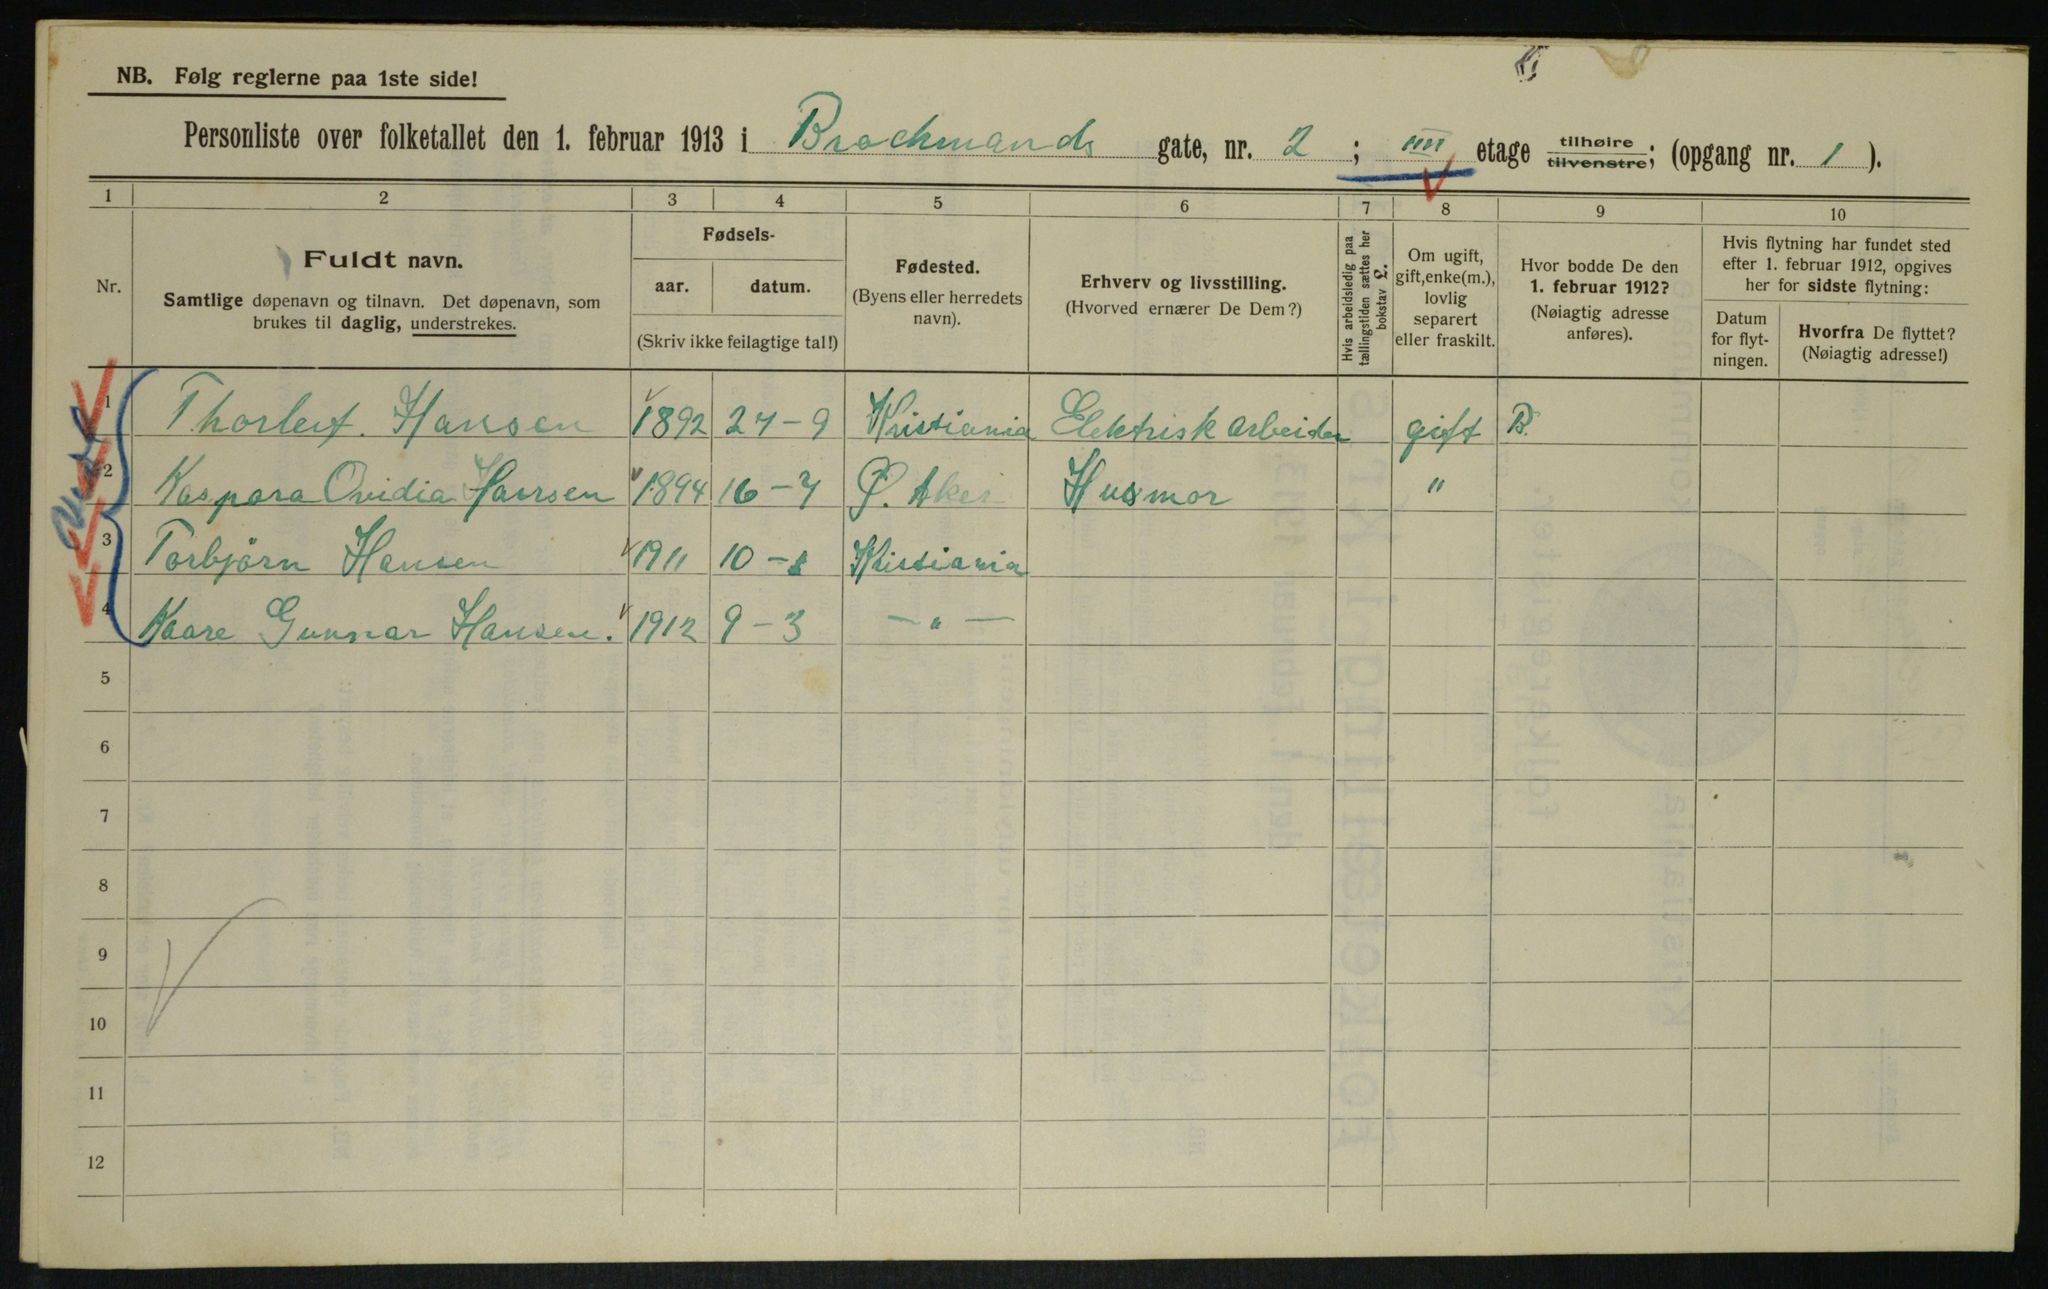 NB. Følg reglerne paa 1ste side!
Personliste over folketallet den 1. februar 1913 i Brochmands gate, nr. 2 ; IIII etage tilhøire tilvenstre; (opgang nr. 1 ).
1 2 3 4 5 6 7 8 9 10
Nr.
Fuldt navn.
Samtlige døpenavn og tilnavn. Det døpenavn, som
brukes til daglig, understrekes.
Fødsels-
aar. datum.
(Skriv ikke feilagtige tal!)
Fødested.
(Byens eller herredets
navn).
Erhverv og livsstilling.
(Hvorved ernærer De Dem?)
Hvis arbeidsledig paa
tællingstiden sættes her
bokstav £.
Om ugift,
gift, enke(m.),
lovlig
separert
eller fraskilt.
Hvor bodde De den
1. februar 1912?
(Nøiagtig adresse
anføres).
Hvis flytning har fundet sted
efter 1. februar 1912, opgives
her for sidste flytning:
Datum
for flyt-
ningen.
Hvorfra De flyttet?
(Nøiagtig adresse!)
1 Thorleif. Hansen 1892 27-9 Kristiania Elektrisk arbeider gift B.
2 Kaspara Ovidia Hansen 1894 16-7 Ø. Aker Husmor "
3 Torbjörn Hansen 1911 10- Kristiania
4 Kaare Gunnar Hansen. 1912 9-3 — " —
5
6
7
8
9
10
11
12